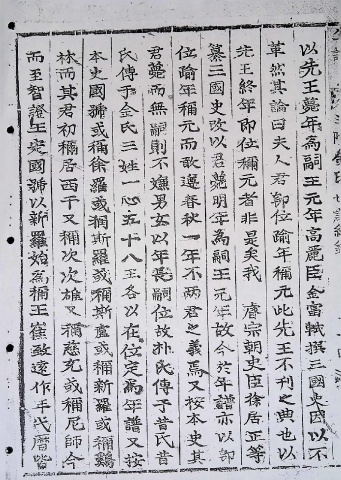 以先王薨年爲嗣王元年高麗臣金富軾撰三國史因以不
革然其論曰夫人君卽位踰年稱元此先王不刊之典也以
先王終年卽位稱元者非是矣我 睿宗朝史臣徐居正等
纂三國史改以君薨明年爲嗣王元年故今於年譜亦以卽
位踰年稱元而敢遵春秋一年不两君之義焉又按本史其
君薨而無嗣則不嫌男女以年長嗣位故朴氏傳于昔氏昔
氏傳于金氏三姓一心五十八王各以在位定爲年譜又按
本史國號或稱徐羅或稱斯羅或稱斯盧或稱新羅或稱鷄
林而其君初稱居西干又稱次次雄又稱慈充或稱尼師今
而至智證王定國號以新羅始爲稱王崔致遠作年代曆皆